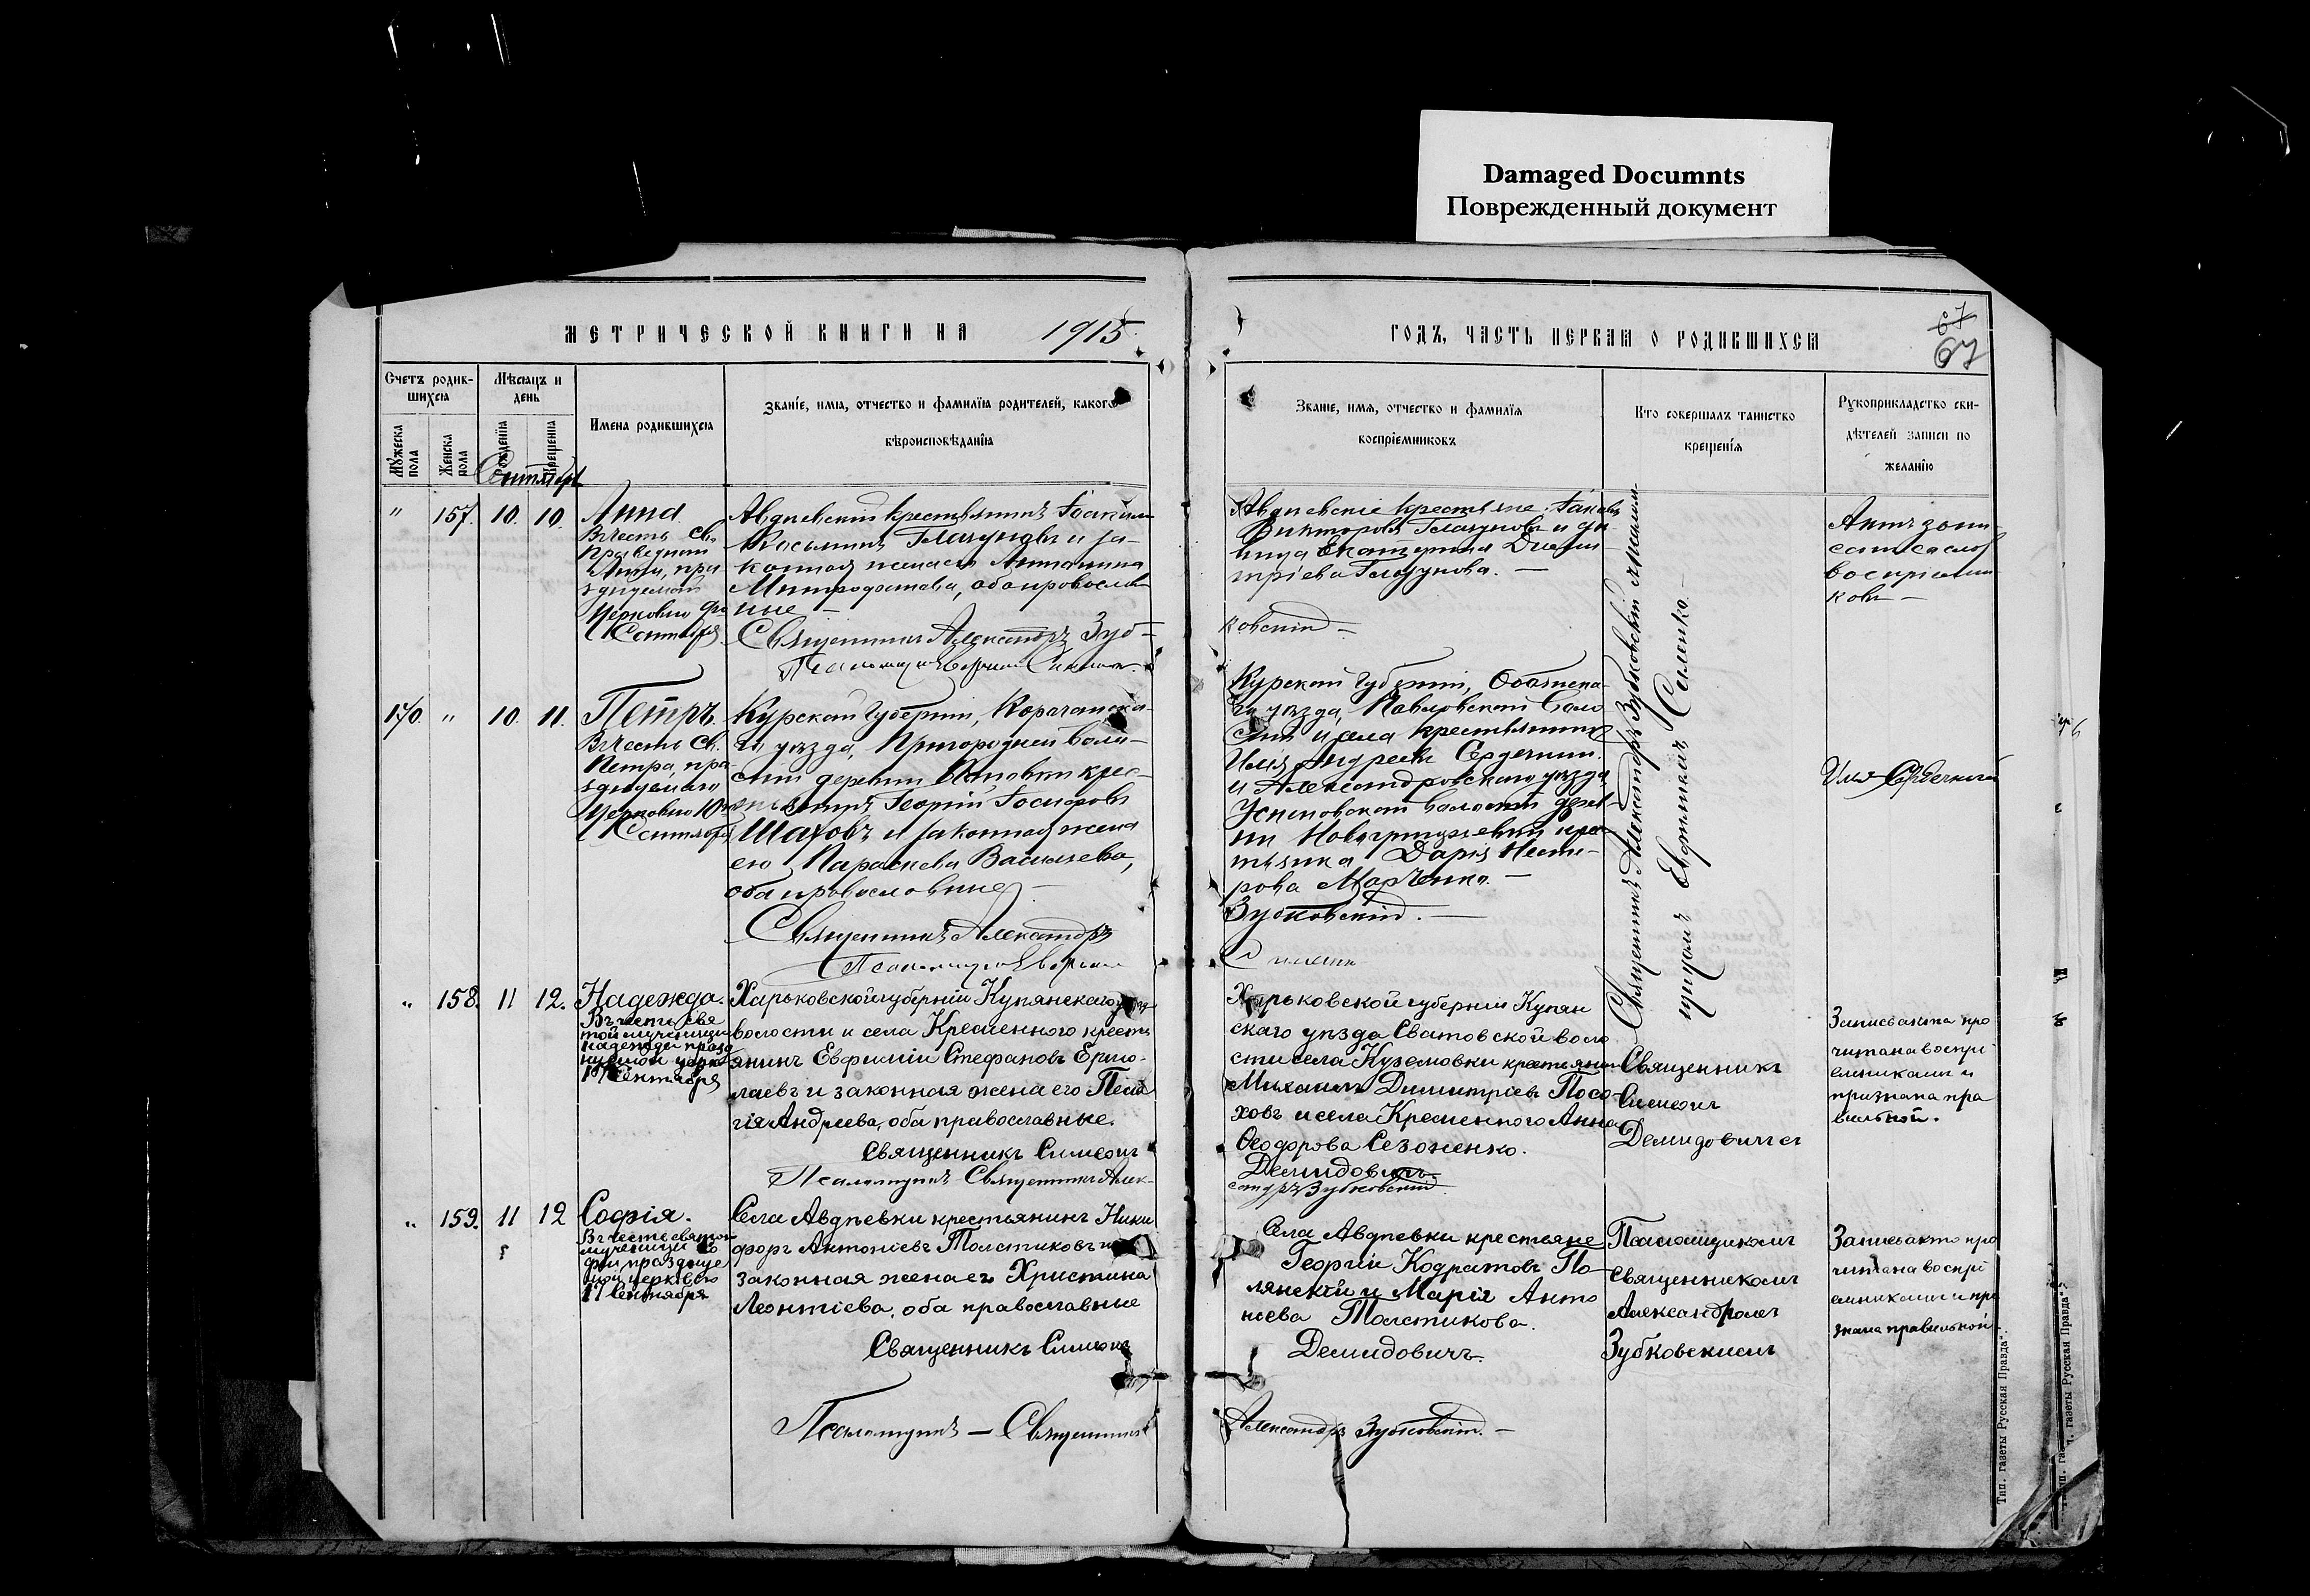 Damaged Documnts
Поврежденный документ
МЕТРИЧЕСКОЙ КНИГИ НА 1915
ГОДЪ, ЧАСТЬ ПЕРВАЯ О РОДИВШИХСЯ
67
67
Счетъ родив-
шихся
Мѣсяцъ и
день
Мужеска
пола
Женска
пола
рожденія
крещенія
Имена родившихся
Званіе, имя, отчество и фамилія родителей, какого
вѣроисповѣданія
Званіе, имя, отчество и фамилія
воспріемниковъ
Кто совершалъ таинство
крещенія
Рукоприкладство сви-
дѣтелей записи по
желанію
Сентябрь
" 157. 10. 10.
Анна.
Въ честь св.
Праведной
Анны, пра
зднуемой
Церковію
Сентября
Авдѣевскій крестьянинъ
Косьминъ Глазуновъ и за-
конная жена его Антонина
Митрофанова, оба православ
ные —
Священникъ Александръ Зуб-
Авдѣевскіе крестьяне: Іаковъ
Викторовъ Глазуновъ и дѣ-
вица Екатерина Дими-
тріева Глазунова. —
ковскій —
Актъ запи-
санъ со слов
воспріемни
ковъ —
170. " 10. 11.
Петръ.
Въ честь св.
Петра, пра-
зднуемаго
Церковію 10
Сентября
Курской губерніи, Корочанска-
го уѣзда, Пригородней воло-
сти деревни крес-
тьянинъ Георгій Іосифовъ
Шаховъ и законная жена
его Параскева Васильева,
оба православные —
Священникъ Александръ
Курской губерніи, Обоянска-
го уѣзда, Павловской Воло
сти и села крестьянинъ
Илія Андреевъ Сердечный
и Александровскаго уѣзда
Успеновской волости дерев
ни крес
тьянка Дарія Несте-
рова Марченко. —
Зубковскій. —
Священникъ Александръ Зубковскій
Евфимій Саленко.
Илья Сердечный
" 158. 11 12.
Надежда.
Въ честь свя
той мученицы
Надежды празд
нуемой церков
17 Сентября
Харьковской губерніи Купянскаго уѣзда
волости и села Кременного кресть
янинъ Евфимій Стефановъ Ермо-
лаевъ и законная жена его Пела
гія Андреева, оба православные.
Священникъ Симеонъ
Псаломщикъ Священникъ Алек-
Харьковской губерніи Купян
скаго уѣзда Сватовской воло
сти села Куземовки крестьянинъ
Михаилъ Димитріевъ Посо-
ховъ и села Кременного Анна
Ѳеодорова Сезоненко.
Демидовичъ
сандръ Зубковскій.
Священникъ
Симеонъ
Демидовичъ съ
Запись акта про
читана воспрі
емниками и
признана пра
вильной.
" 159. 11 12
Софія.
Въ честь святой
мученицы Со
фіи, празднуе
мой церковію
17 Сентября
Села Авдѣевки крестьянинъ Ники
форъ Антоніевъ Толстиковъ и
законная жена его Христина
Леонтіева, оба православные
Священникъ Симеонъ
Псаломщикъ — Священникъ
Села Авдѣевки крестьяне
Георгій Кодратовъ По-
лянскій и Марія Анто
ніева Толстикова.
Демидовичъ.
Александръ Зубковскій. —
Псаломщикомъ
Священникомъ
Александромъ
Зубковскимъ
Запись акта про
читана воспрі
емниками и при
знана правильной.
Тип. газеты Русская Правда".
газеты Русская Правда".